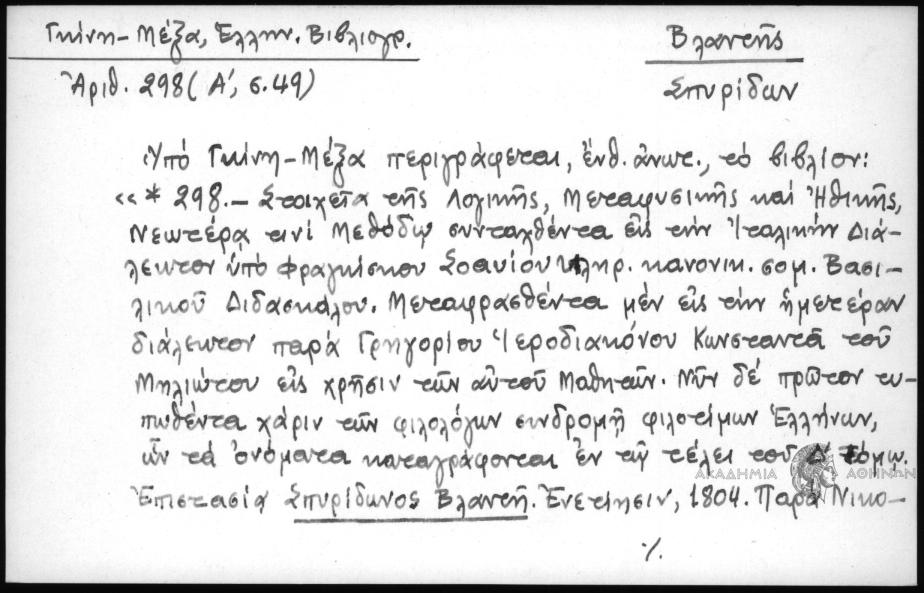 Γκίνη-Μέξα, Ἑλλην. Βιβλιογρ.
Βλαντῆς
Ἀριθ. 298 (Α', σ. 49)
Σπυρίδων
Ὑπό Γκίνη-Μέξα περιγράφεται, ἔνθ. ἀνωτ., τό βιβλίον:
«* 298.- Στοιχεῖα τῆς Λογικῆς, Μεταφυσικῆς καί Ἠθικῆς,
Νεωτέρᾳ τινί Μεθόδῳ συνταχθέντα εἰς τήν Ἰταλικήν Διά-
λεκτον ὑπό Φραγκίσκου Σοαυίου κληρ. κανονικ. σομ. Βασι-
λικοῦ Διδασκάλου. Μεταφρασθέντα μέν εἰς τήν ἡμετέραν
διάλεκτον παρά Γρηγορίου Ἱεροδιακόνου Κωνσταντᾶ τοῦ
Μηλιώτου εἰς χρῆσιν τῶν αὐτοῦ Μαθητῶν. Νῦν δέ πρῶτον τυ-
πωθέντα χάριν τῶν φιλολόγων συνδρομῇ φιλοτίμων Ἑλλήνων,
ὧν τά ὀνόματα καταγράφονται ἐν τῷ τέλει τοῦ Δ' τόμῳ.
Ἐπιστασίᾳ Σπυρίδωνος Βλαντῆ. Ἐνετίησιν, 1804. Παρά Νικο-
ΑΚΑΔΗΜΙΑ ΑΘΗΝΩΝ
·/.